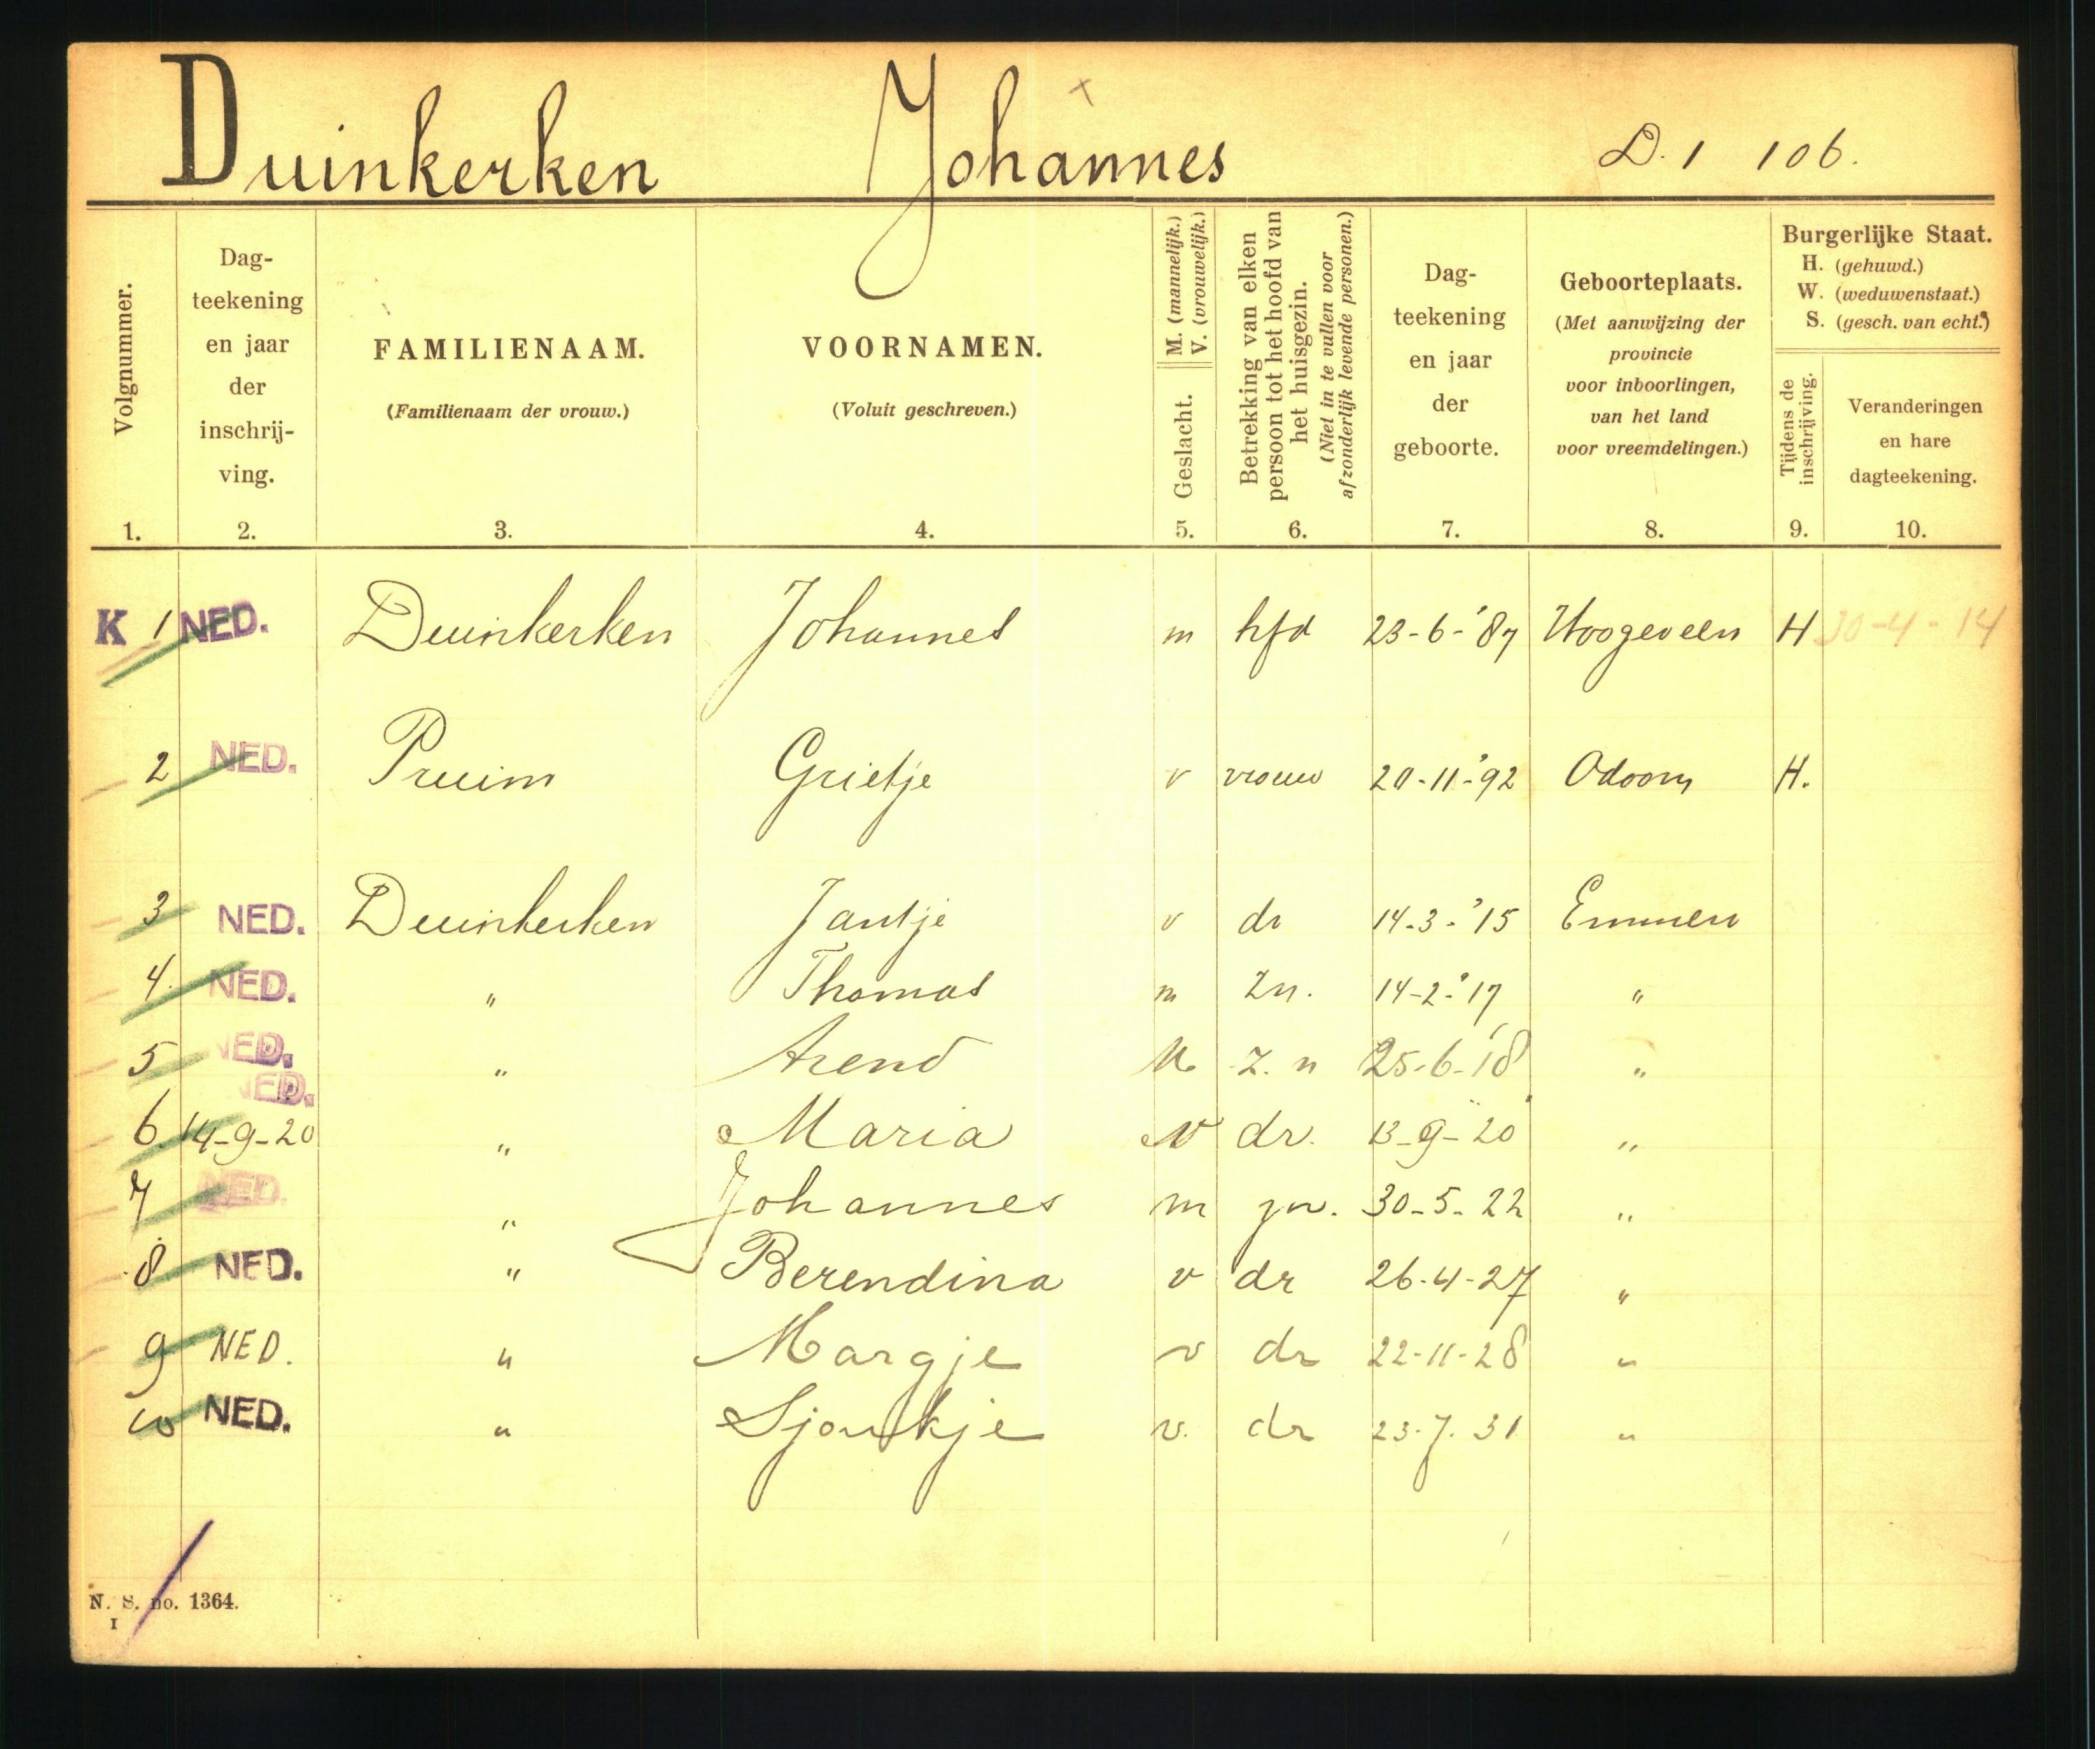 Duinkerken Johannes D. 1 106.
Volgnummer.
Dag-
teekening
en jaar
der
inschrij-
ving.
FAMILIENAAM.
(Familienaam der vrouw.)
VOORNAMEN.
(Voluit geschreven.)
M. (mannelijk.)
V. (vrouwelijk.)
Geslacht.
Betrekking van elken
persoon tot het hoofd van
het huisgezin.
(Niet in te vullen voor
afzonderlijk levende personen.)
Dag-
teekening
en jaar
der
geboorte.
Geboorteplaats.
(Met aanwijzing der
provincie
voor inboorlingen,
van het land
voor vreemdelingen.)
Burgerlijke Staat.
H. (gehuwd.)
W. (weduwenstaat.)
S. (gesch. van echt.)
Tijdens de
inschrijving.
Veranderingen
en hare
dagteekening.
1. 2. 3. 4. 5. 6. 7. 8. 9. 10.
K 1 NED. Duinkerken Johannes m hfd 23-6-'87 Hoogeveen H 30-4-14
2 NED. Pruim Grietje v vrouw 20-11-'92 Odoorn H.
3 NED. Duinkerken Jantje v dr 14-3-'15 Emmen
4. NED. " Thomas m Zn. 14-2-'17 "
5 NED. " Arend M Z.n 25-6-18 "
NED.
6 14-9-20 " Maria V dr. 13-9-20 "
7 NED. " Johannes m zn. 30-5-22 "
8 NED. " Berendina v dr 26-4-27 "
9 NED. " Margje v dr 22-11-28 "
10 NED. " Sjoukje v. dr 23.7.31 "
N. S. no. 1364.
I